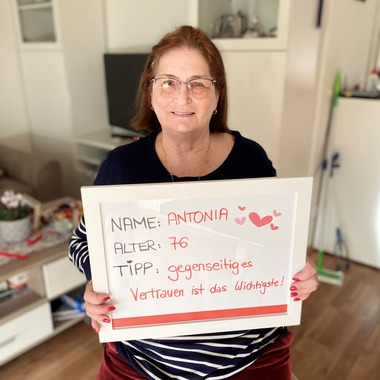 NAME: ANTONIA
ALTER: 76
TIPP: gegenseitiges
Vertrauen ist das Wichtigste!